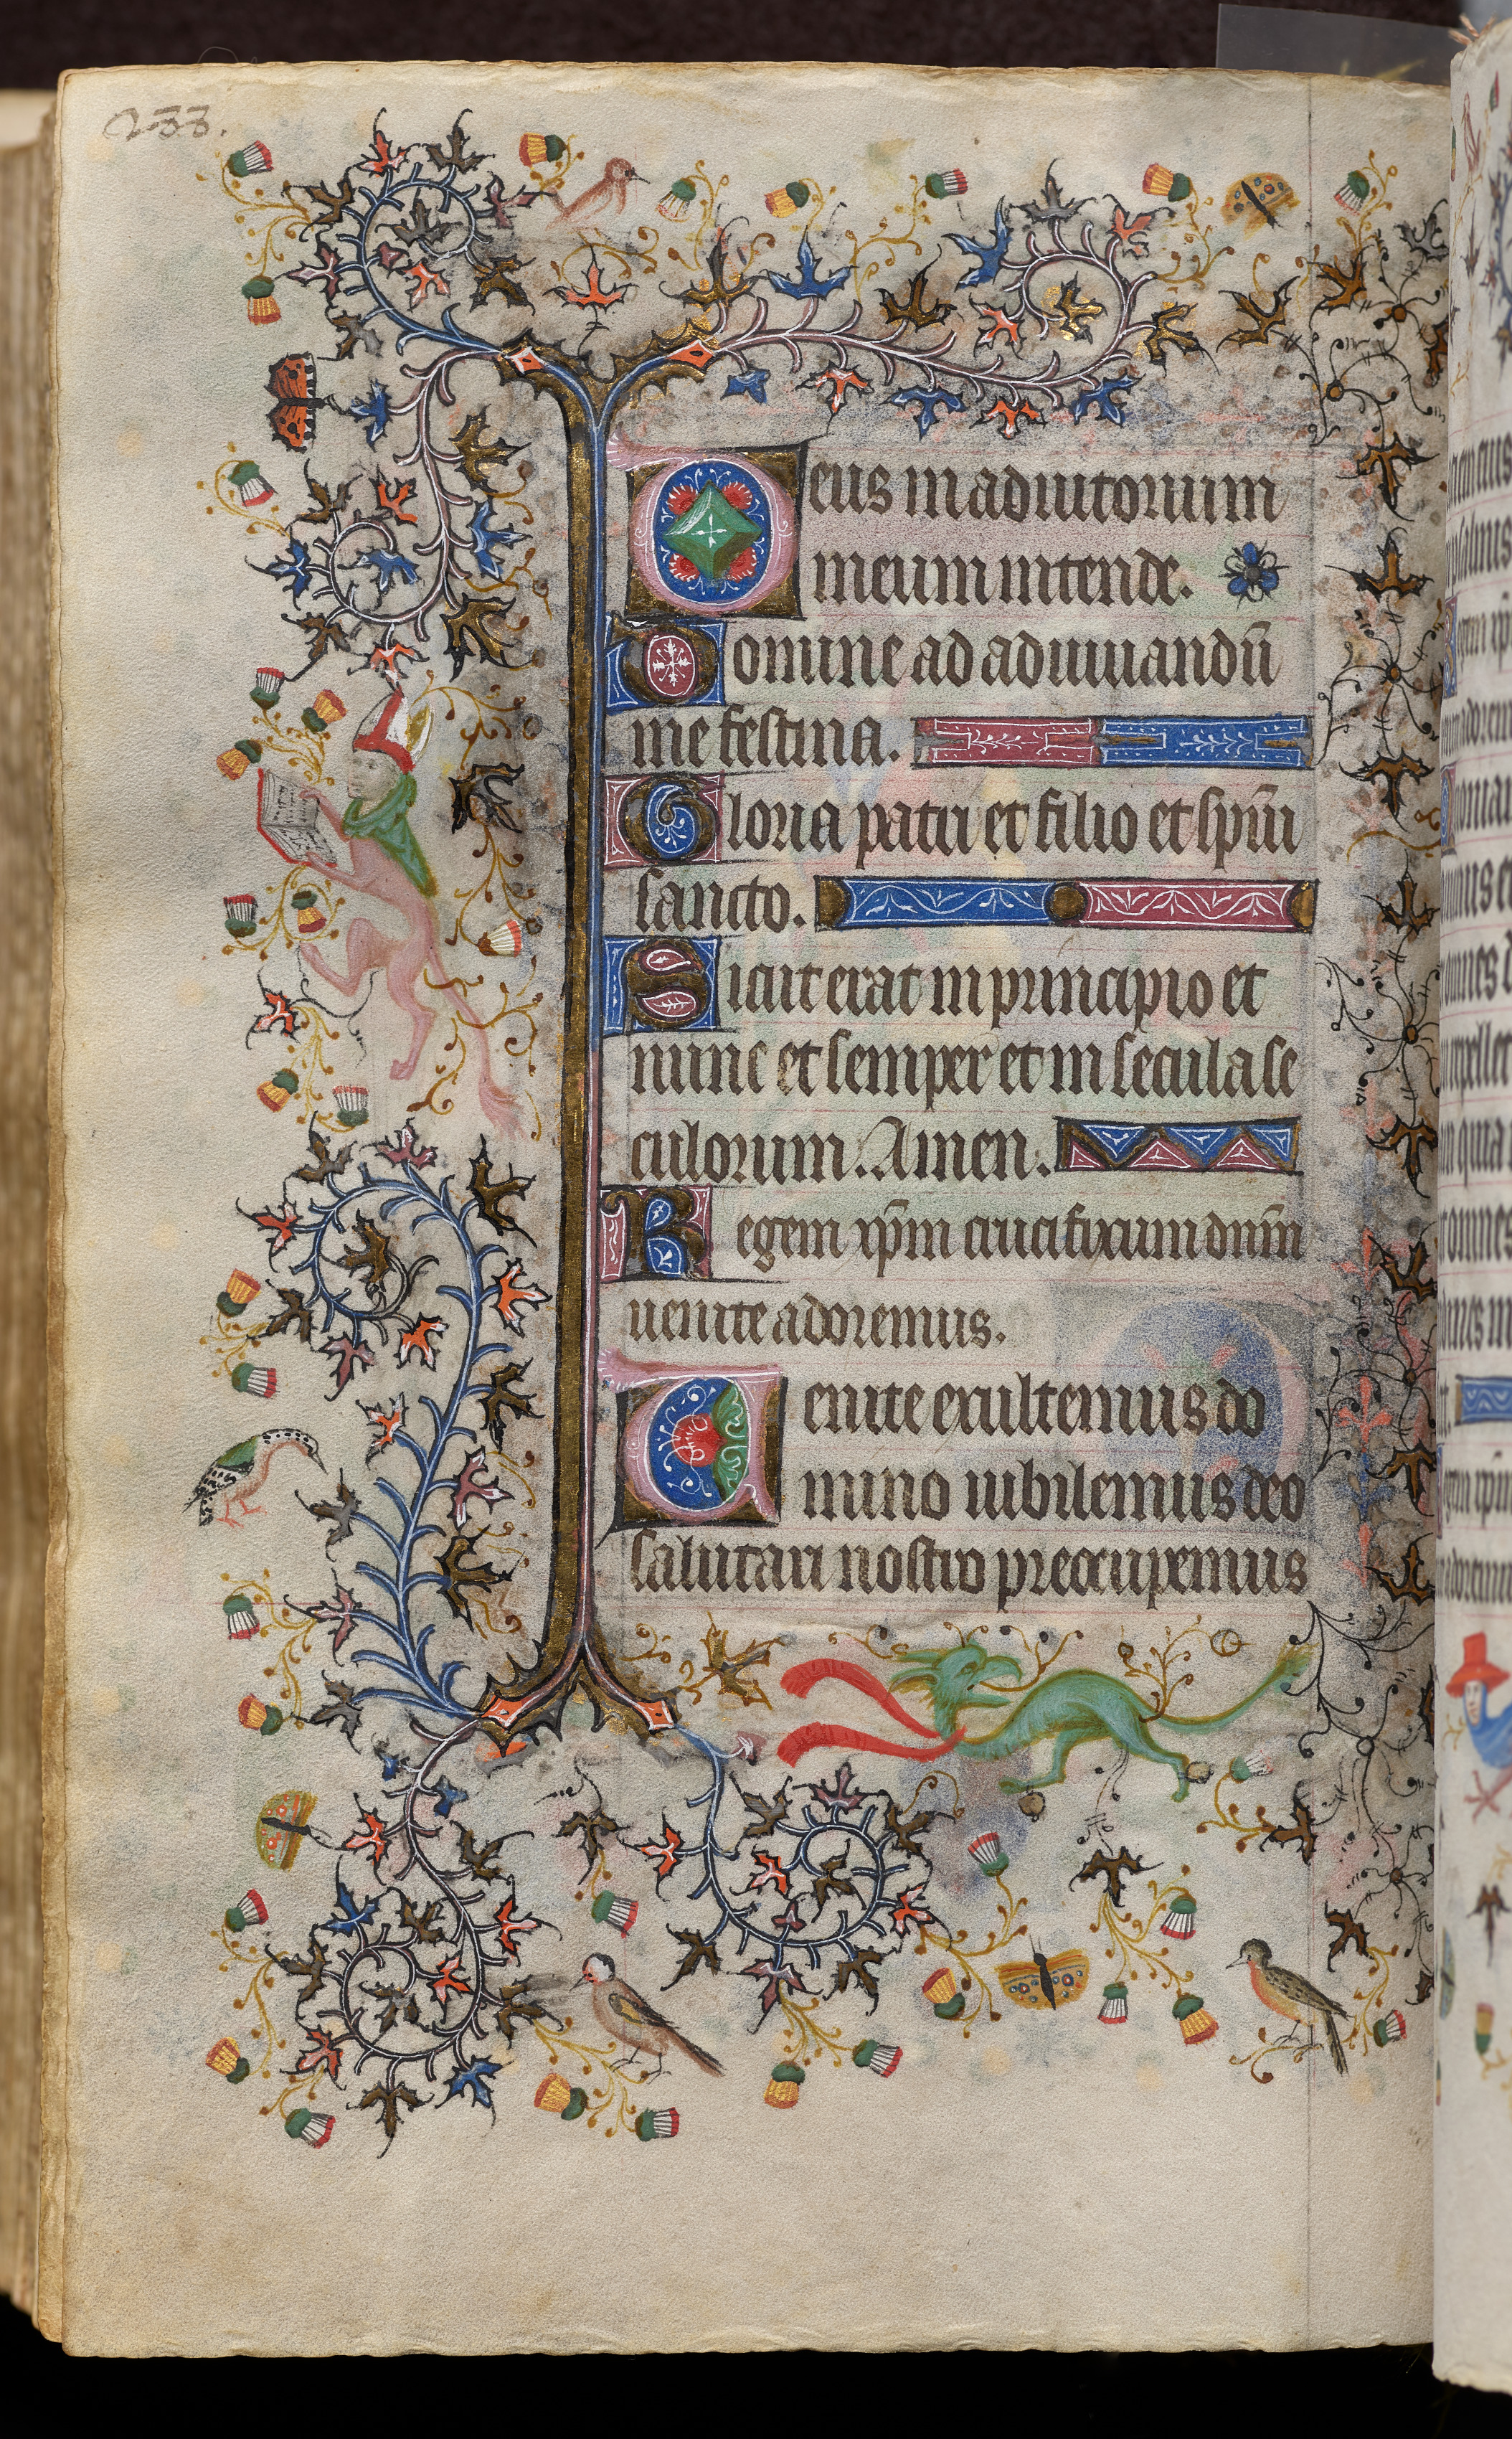 233.
Deus in adiutorium
meum intende.
Domine ad adiuuandū
me festina.
Gloria patri et filio et spūi
sancto.
Sicut erat in principio et
nunc et semper et in secula se
culorum. Amen.
Regem xp̄m crucifixum dnm̄
uenite adoremus.
Uenite exultemus do
mino iubilemus deo
salutari nostro preocupemus